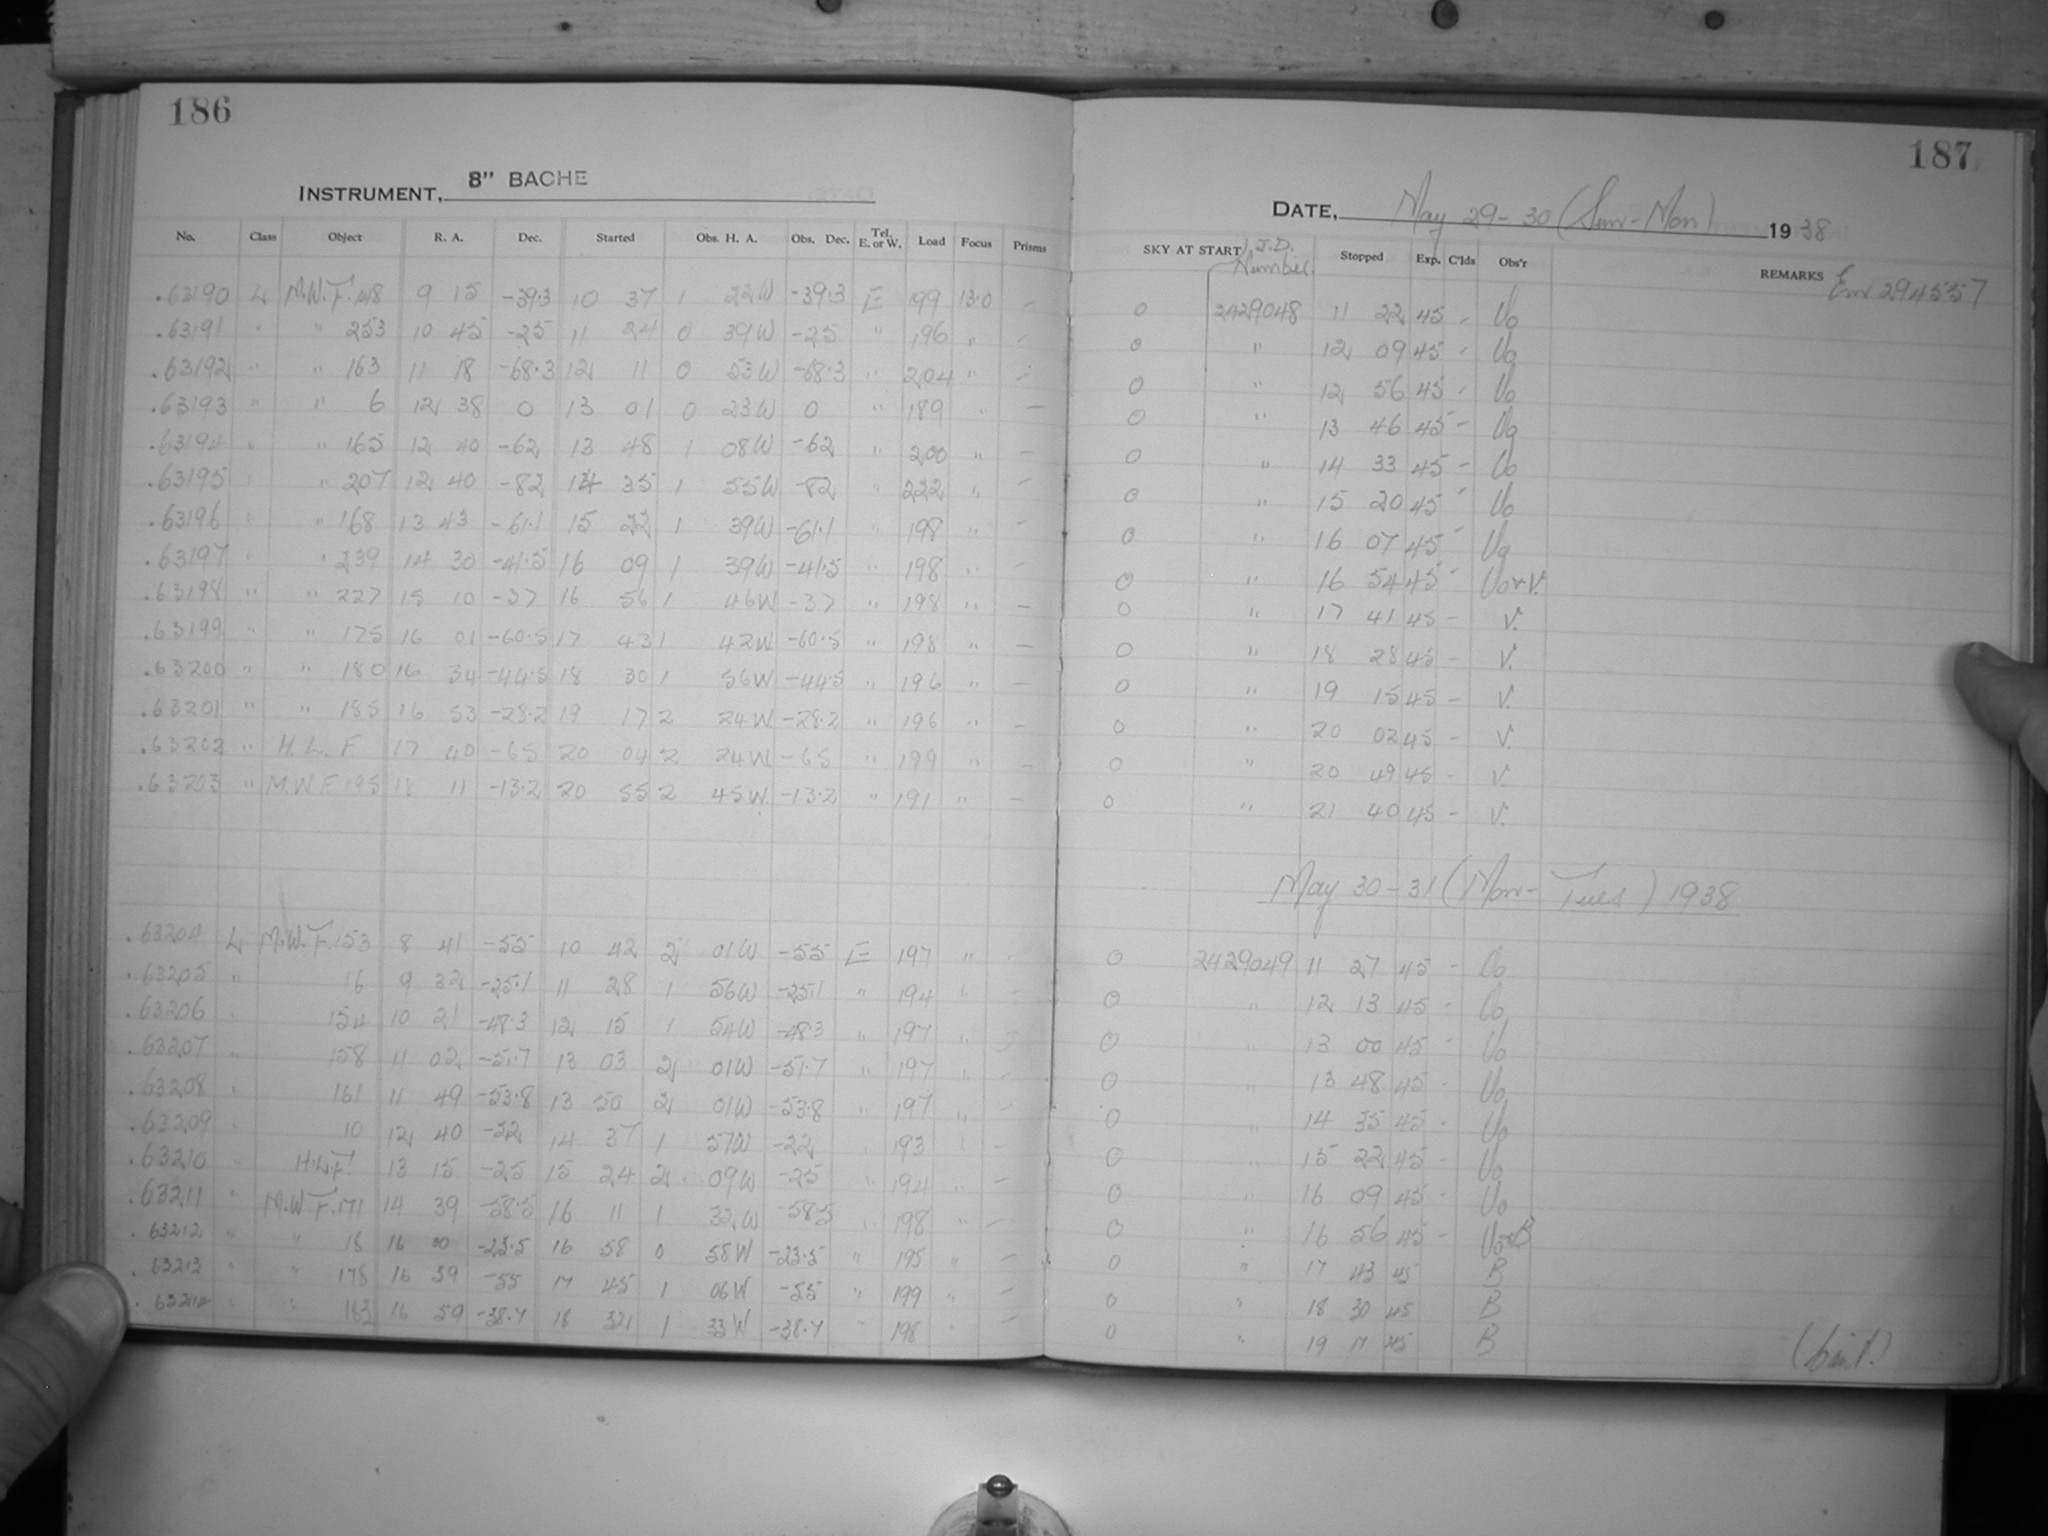 186
INSTRUMENT, 8" BACHE
No. Class Object R. A. Dec. Started Obs. H. A. Obs. Dec. Tel. E. or W. Load Focus Prisms
.63190 L M.W.F. 148 9 15 -39.3 10 37 1 22W -39.3 E 199 13.0 -
.63191 " " 253 10 45 -25 11 24 0 39W -25 " 196 " -
.63192 " " 163 11 18 -68.3 12 11 0 53W -68.3 " 204 " -
.63193 " " 6 12 38 0 13 01 0 23W 0 " 189 " -
.63194 " " 165 12 40 -62 13 48 1 08W -62 " 200 " -
.63195 " " 207 12 40 -82 14 35 1 55W -82 " 222 " -
.63196 " " 168 13 43 -61.1 15 22 1 39W -61.1 " 198 " -
.63197 " " 239 14 30 -41.5 16 09 1 39W -41.5 " 198 " -
.63198 " " 227 15 10 -37 16 56 1 46W -37 " 198 " -
.63199 " " 175 16 01 -60.5 17 43 1 42W -60.5 " 198 " -
.63200 " " 180 16 34 -44.5 18 30 1 56W -44.5 " 196 " -
.63201 " " 185 16 53 -28.2 19 17 2 24W -28.2 " 196 " -
.63202 " H.L.F. 17 40 -65 20 04 2 24W -65 " 199 " -
.63203 " M.W.F. 195 18 11 -13.2 20 55 2 45W -13.2 " 191 " -
.63204 L M.W.F. 153 8 41 -55 10 42 2 01W -55 E 197 " -
.63205 " 16 9 32 -25.1 11 28 1 56W -25.1 " 194 " -
.63206 " 154 10 21 -48.3 12 15 1 54W -48.3 " 197 " -
.63207 " 158 11 02 -51.7 13 03 2 01W -51.7 " 197 " -
.63208 " 161 11 49 -53.8 13 50 2 01W -53.8 " 197 " -
.63209 " 10 12 40 -22 14 37 1 57W -22 " 193 " -
.63210 " H.L.F. 13 15 -25 15 24 2 09W -25 " 194 " -
.63211 " M.W.F. 171 14 39 -58.5 16 11 1 32W -58.5 " 198 " -
.63212 " " 18 16 00 -23.5 16 58 0 58W -23.5 " 195 " -
.63213 " " 178 16 39 -55 17 45 1 06W -55 " 199 " -
" " 183 16 59 -38.7 18 32 1 33W -38.7 " 198 " -
187
DATE, May 29-30 (Sun-Mon) 1938
SKY AT START J.D. Number Stopped Exp. C'lds Obs'r REMARKS
0 2429048 11 22 45 - Uo
0 " 12 09 45 - Uo
0 " 12 56 45 - Uo
0 " 13 46 45 - Uo
0 " 14 33 45 - Uo
0 " 15 20 45 - Uo
0 " 16 07 45 - Uo
0 " 16 54 45 - Uo+V.
0 " 17 41 45 - V.
0 " 18 28 45 - V.
0 " 19 15 45 - V.
0 " 20 02 45 - V.
0 " 20 49 45 - V.
0 " 21 40 45 - V.
May 30-31 (Mon-Tues) 1938
0 2429049 11 27 45 - Uo
0 " 12 13 45 - Uo
0 " 13 00 45 - Uo
0 " 13 48 45 - Uo
0 " 14 35 45 - Uo
0 " 15 22 45 - Uo
0 " 16 09 45 - Uo
0 " 16 56 45 - Uo+B
0 " 17 43 45 B
0 " 18 30 45 B
0 " 19 17 45 B